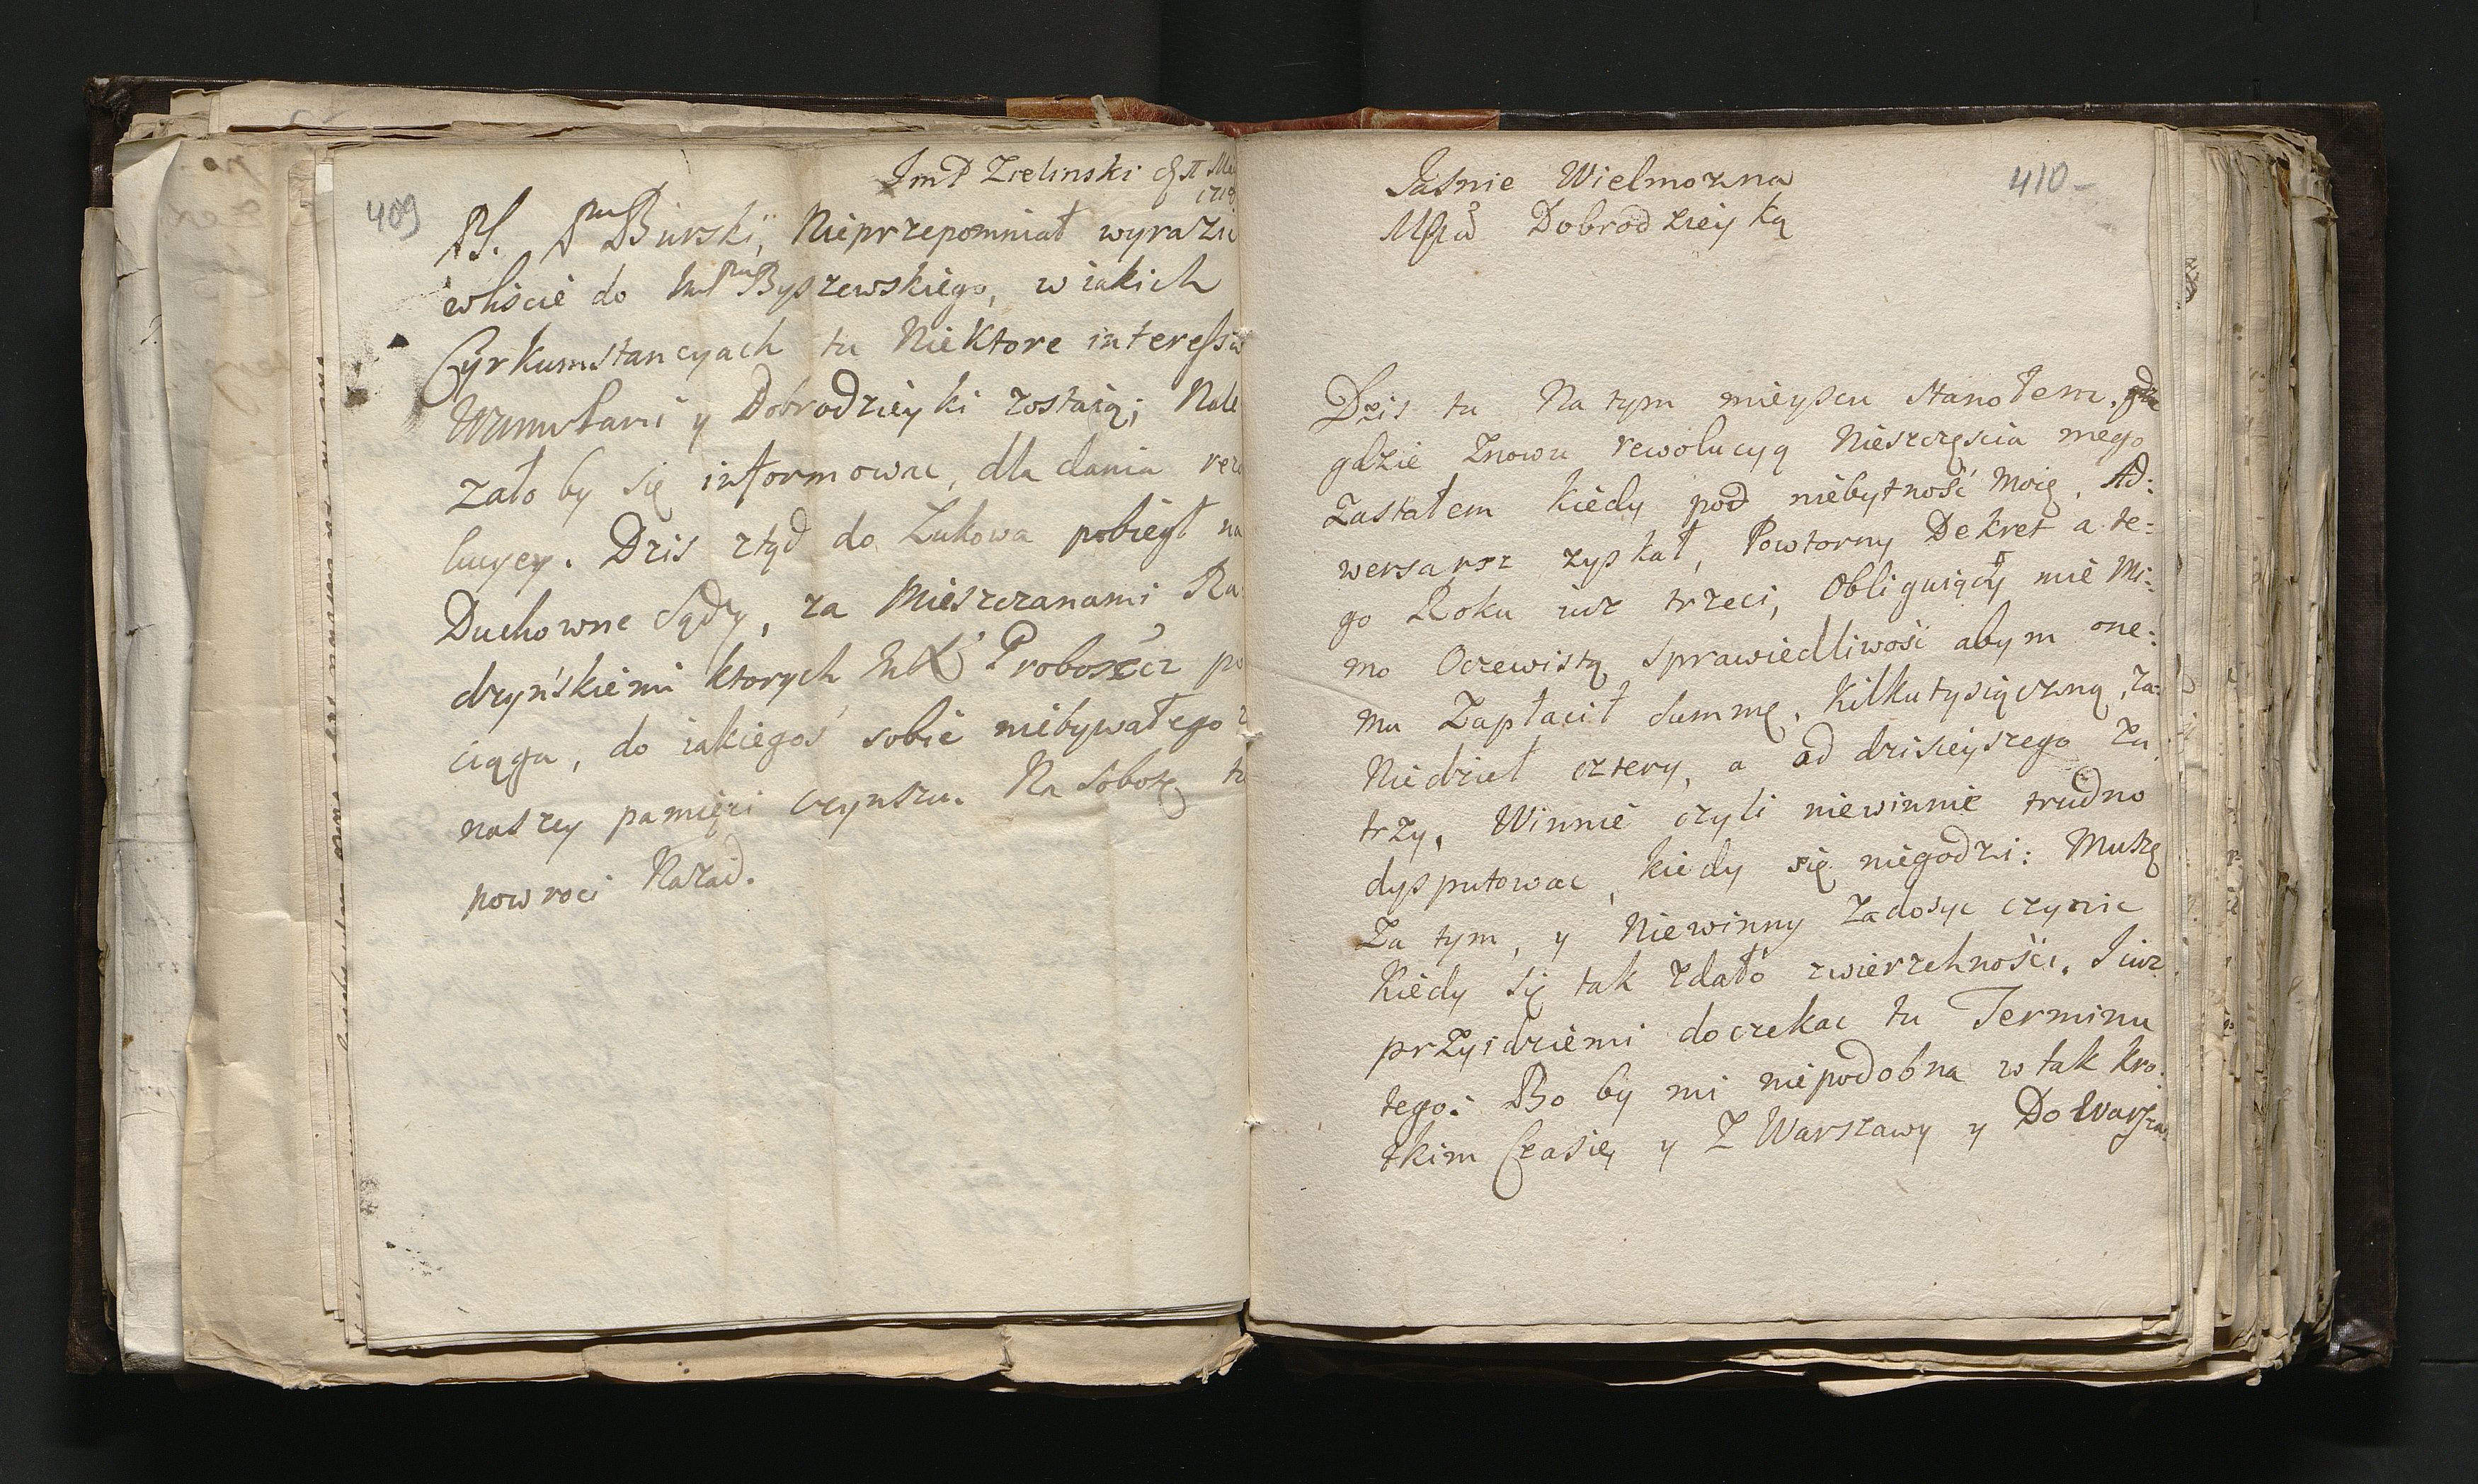 409
ImP Zielinski
PS. Pan Burski, Nieprzepomniał wyrazi
wliscie do ImPana Byszewskiego, w iakich
Cyrkumstancyach tu Niektore interessa
y Dobrodzieyki zostaią; Nale
zało by się informowac, dla dania rezo
lucyey. Dzis ztąd do Łukowa pobiegł na
Duchowne Sądy, za Mieszczanami Ra:
dzyńskiemi ktorych ImX Proboszcz po
ciąga, do iakiegoś sobie niebywałego z
naszey pamięci czynszu. Na Sobotę tu
powroci Nazad.
410
Jasnie Wielmozna
Dobrodzieyką
Dzis tu Na tym mieyscu Stanołem,
gdzie Znowu rewolucyą Nieszczęscia mego
Zastałem kiedy pod niebytność Moię, Ad:
wersarsz zyskał, Powtorny Dekret a te:
go Roku iuz trzeci, Obliguiący mie Mi:
mo Oczewistą sprawiedliwość abym one:
mu Zapłacił Summę, Kilkutysiączną, Za
Niedziel cztery, a ad dzisieyszego Za
trzy, Winnie czyli niewinnie trudno
dysputowac, kiedy się niegodzi: Muszę
Za tym, y Niewinny Zadosyc czynic
Kiedy się tak zdało zwierzchnośći. I iuz
przyidziemi doczekac tu Terminu
tego: Bo by mi niepodobna w tak kro:
tkim Czasie, y Z Warszawy y Do Warsza: